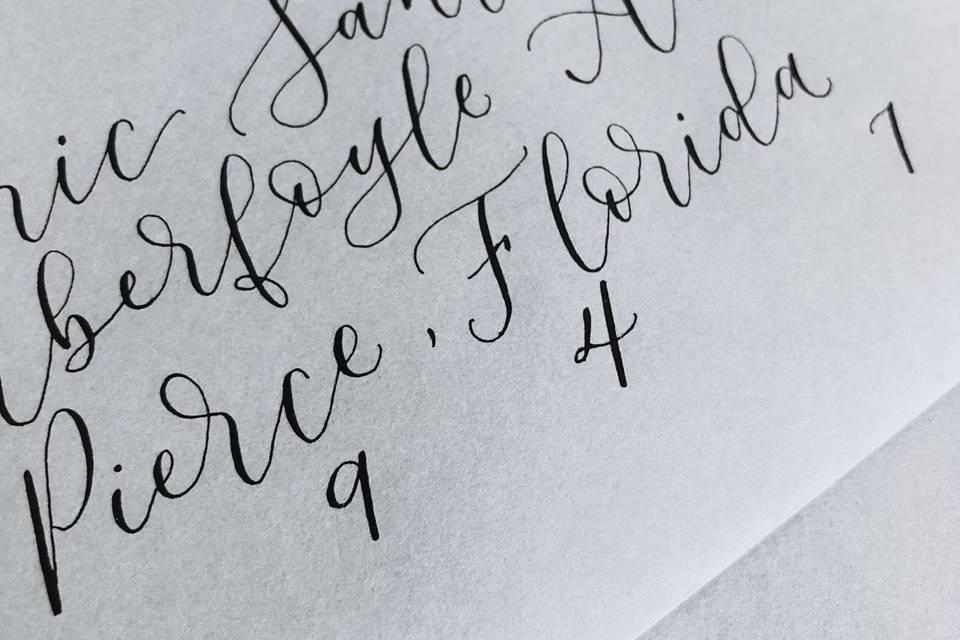 ric San
berfoyle A
Pierce, Florida
9 4 1